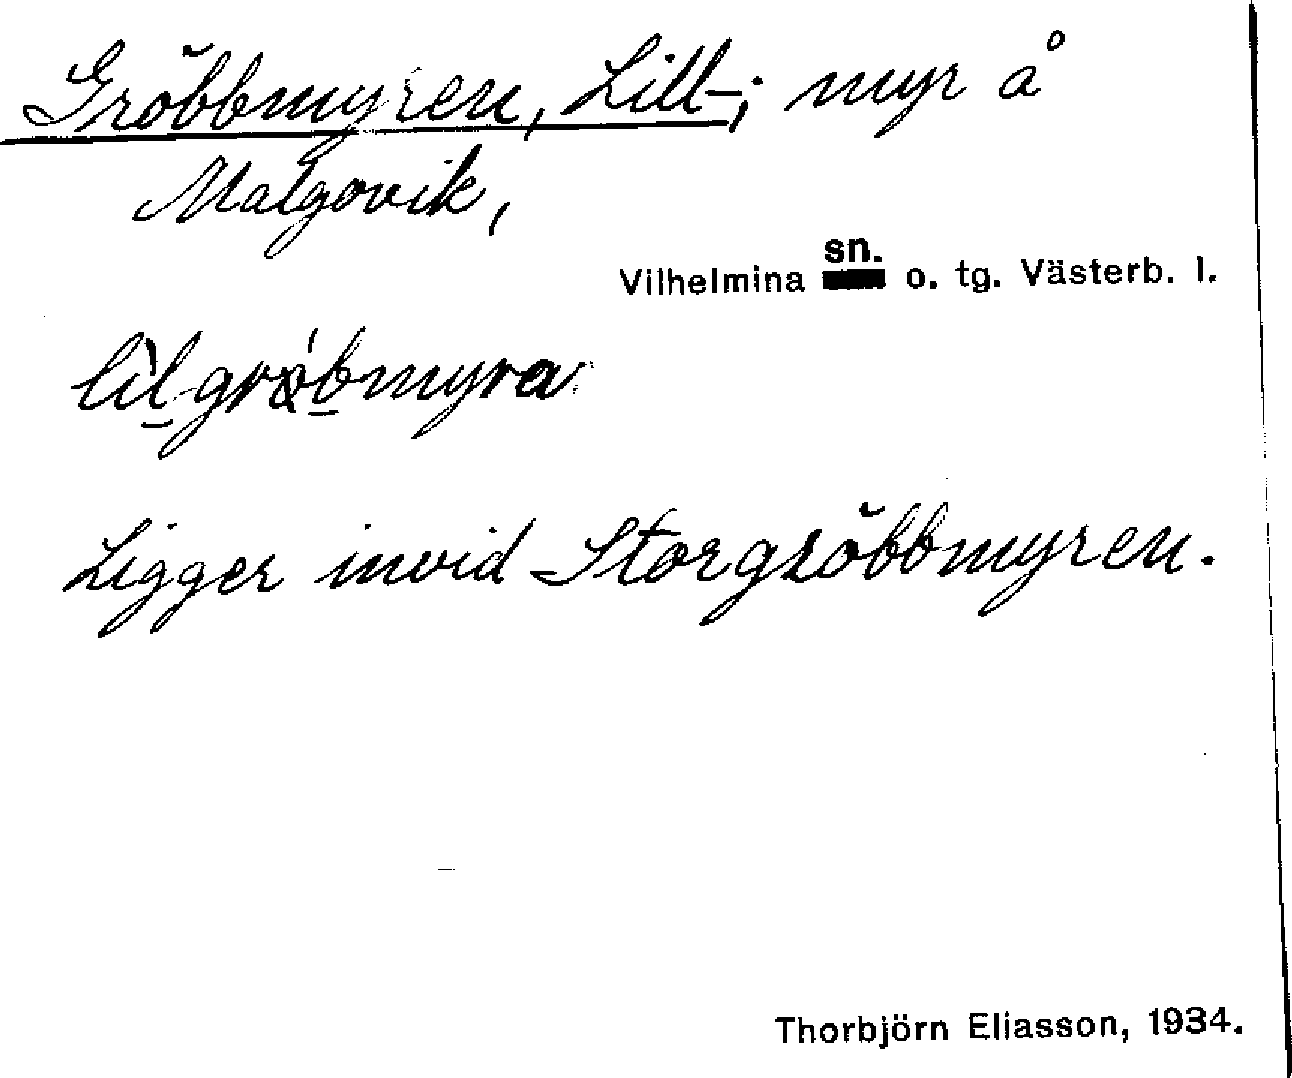 Gröbbmyren, Lill-; myr å
Malgovik,
Vilhelmina sn. o. tg. Västerb. l.
Ligger invid Storgröbbmyren.
Thorbjörn Eliasson, 1934.